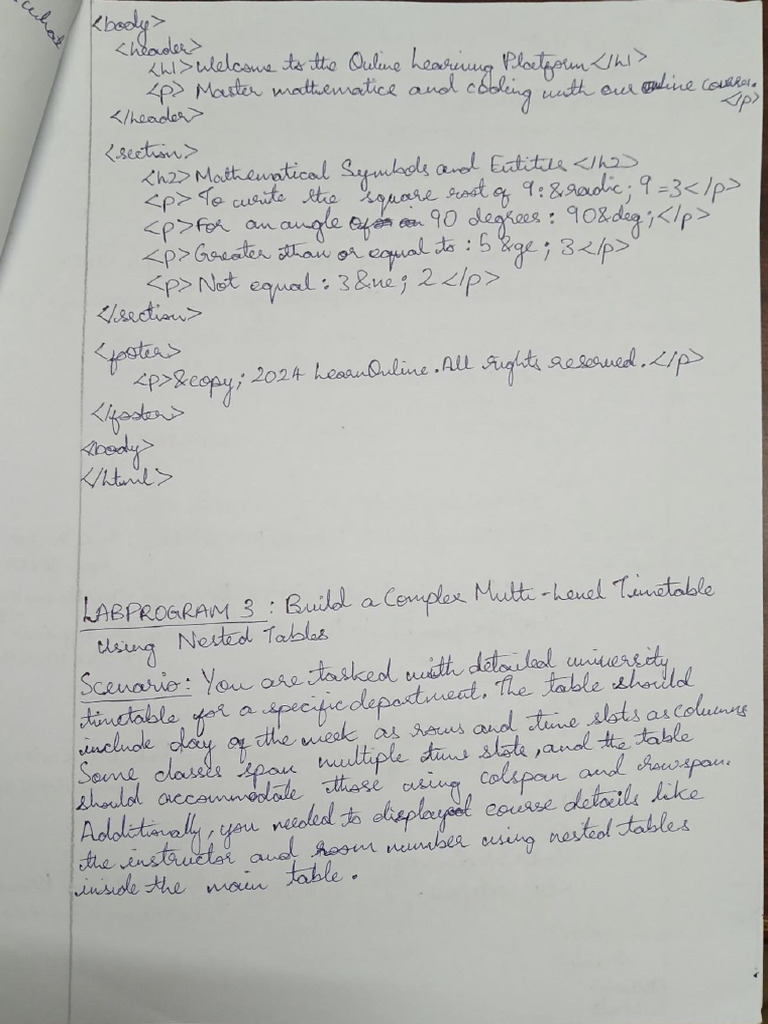 <body>
<header>
<h1>Welcome to the Online Learning Platform</h1>
<p> Master mathematics and coding with our online courses.
</p>
</header>
<section>
<h2>Mathematical Symbols and Entities</h2>
<p> To write the square root of 9: &radic; 9 =3</p>
<p>For an angle 90 degrees: 90&deg;</p>
<p>Greater than or equal to : 5 &ge; 3</p>
<p> Not equal : 3 &ne; 2 </p>
</section>
<footer>
<p>&copy; 2024 LearnOnline. All rights reserved. </p>
</footer>
<body>
</html>
LABPROGRAM 3 : Build a Complex Multi-Level Timetable
Using Nested Tables
Scenario: You are tasked with detailed university
timetable for a specific department. The table should
include day of the week as rows and time slots as columns
Some classes span multiple time slots, and the table
should accommodate those using colspan and rowspan.
Additionally, you needed to display course details like
the instructor and room number using nested tables
inside the main table.